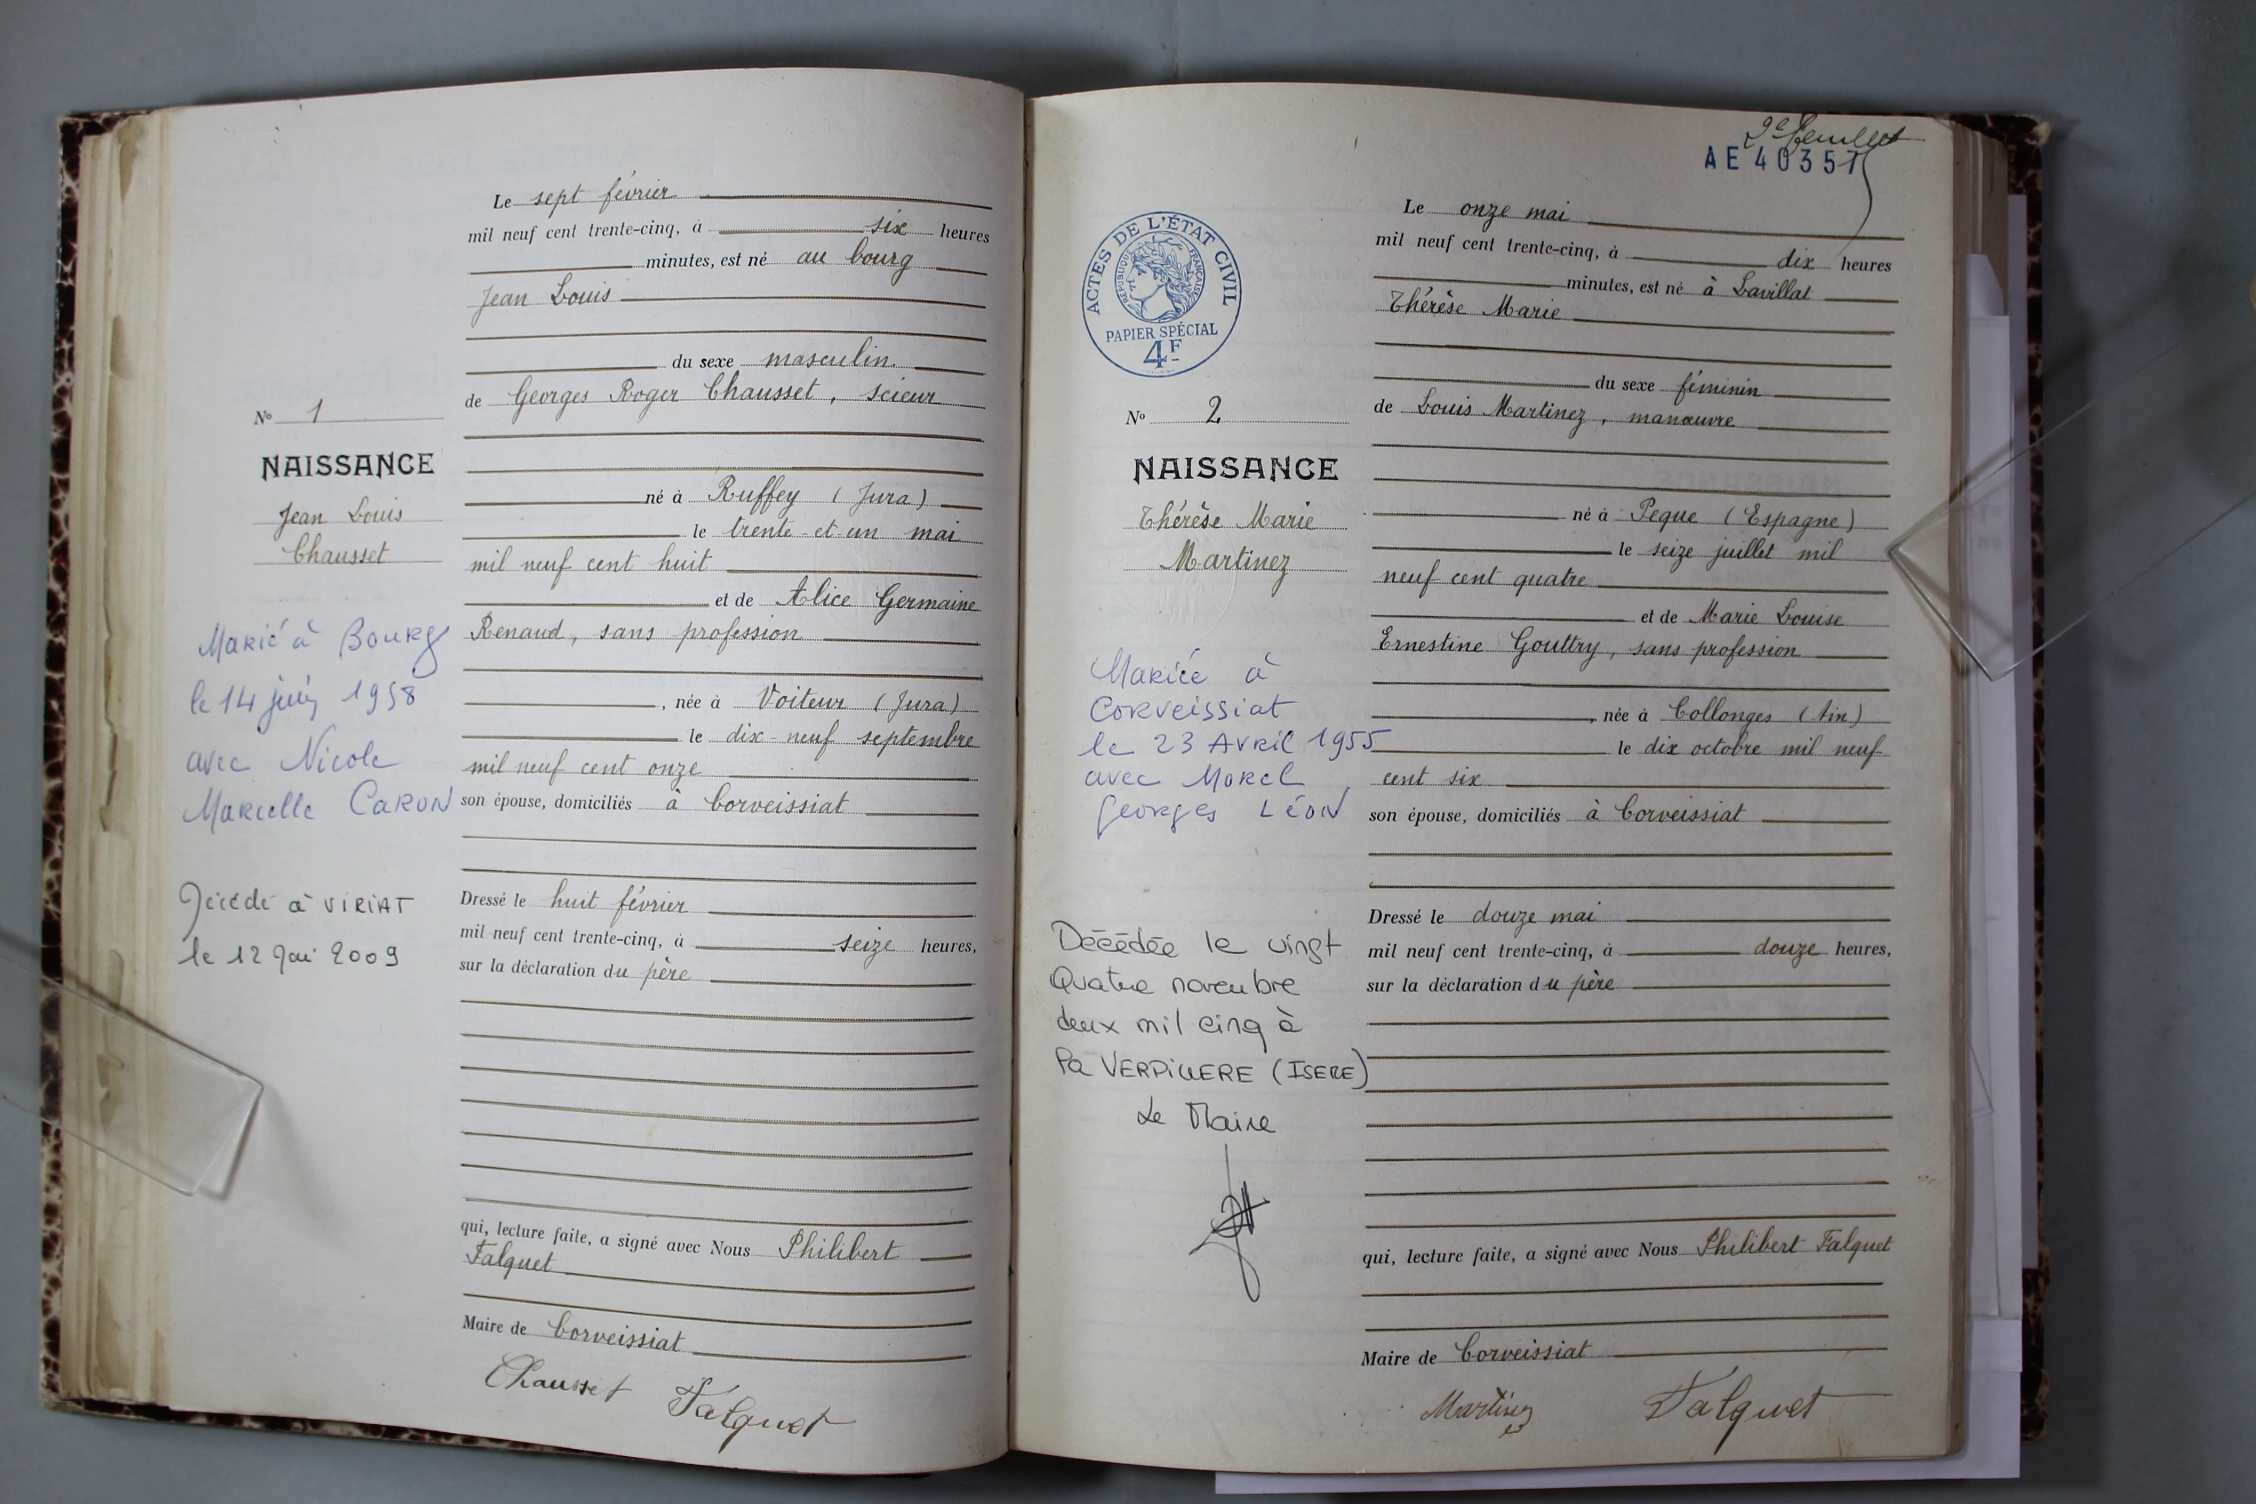 Le sept février
mil neuf cent trente-cinq, à six heures
minutes, est né au bourg
Jean Louis
du sexe masculin.
de Georges Roger Chausset, scieur
né à Ruffey (Jura)
le trente-et-un mai
mil neuf cent huit
et de Alice Germaine
Renaud, sans profession
, née à Voiteur (Jura)
le dix-neuf septembre
mil neuf cent onze
son épouse, domiciliés à Corveissiat
Dressé le huit février
mil neuf cent trente-cinq, à seize heures,
sur la déclaration du père
qui, lecture faite, a signé avec Nous Philibert
Falquet
Maire de Corveissiat
Chausset Falquet
No 1
NAISSANCE
Jean Louis
Chausset
Marié à Bourg
le 14 juin 1958
avec Nicole
Marcelle CARON
Décédé à VIRIAT
le 12 Mai 2009
2e feuillet
AE 40357
ACTES DE L'ÉTAT CIVIL
RÉPUBLIQUE FRANÇAISE
PAPIER SPÉCIAL
4F
Le onze mai
mil neuf cent trente-cinq, à dix heures
minutes, est né à Lavillat
Thérèse Marie
du sexe féminin
de Louis Martinez, manœuvre
né à Peque (Espagne)
le seize juillet mil
neuf cent quatre
et de Marie Louise
Ernestine Gouttry, sans profession
, née à Collonges (Ain)
le dix octobre mil neuf
cent six
son épouse, domiciliés à Corveissiat
Dressé le douze mai
mil neuf cent trente-cinq, à douze heures,
sur la déclaration du père
qui, lecture faite, a signé avec Nous Philibert Falquet
Maire de Corveissiat
Martinez Falquet
No 2
NAISSANCE
Thérèse Marie
Martinez
Mariée à
Corveissiat
le 23 Avril 1955
avec Morel
Georges Léon
Décédée le vingt
Quatre novembre
deux mil cinq à
la VERPILLERE (ISERE)
Le Maire